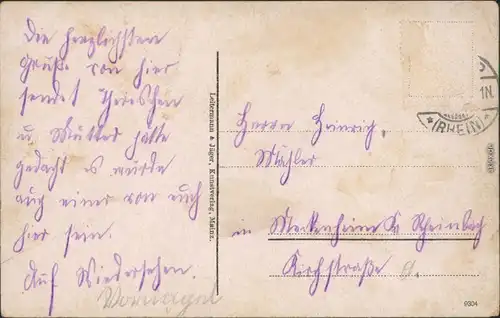 Die herzlichsten
Grüße von hier
sendet Theischen
u. Mutter hätte
gedacht es würde
auch einer von euch
hier sein.
Auf Wiedersehen.
Vornagel
Ledermann & Jäger, Kunstverlag, Mainz.
(RHEIN)
Herrn Heinrich
Mähler
in Meckenheim b/ Rheinbach
Kirchstraße 9.
9504